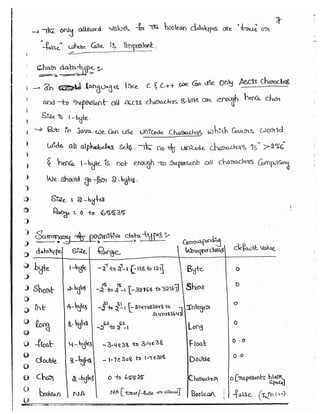 7
→ The only allowed values for the boolean datatypes are "true" or
"false" where Case is Important.
Char data-type :-
→ In old languages like C & C++ we Can use only ASCII characters
and to represent all ASCII characters 8-bits are enough hence char
Size is 1-byte.
→ But in Java we Can use unicode Characters which Covers world
wide all alphabets sets. The no. of unicode characters is >256
& hence 1-byte is not enough to represent all characters Compulsory
We should go for 2-bytes.
Size : 2-bytes
Range : 0 to 65535
Summary of primitive data-types :-
datatype Size Range Corresponding Wrapper class default value
byte 1-byte -2^7 to 2^7-1 [-128 to 127] Byte 0
Short 2-bytes -2^15 to 2^15-1 [-32768 to 32767] Short 0
int 4-bytes -2^31 to 2^31-1 [-2147483648 to 2147483647] Integer 0
long 8-bytes -2^63 to 2^63-1 Long 0
float 4-bytes -3.4e38 to 3.4e38 Float 0.0
double 8-bytes -1.7e308 to 1.7e308 Double 0.0
Char 2-bytes 0 to 65535 Character 0 [represents blank Space]
boolean N/A N/A [true/false are allowed] Boolean false